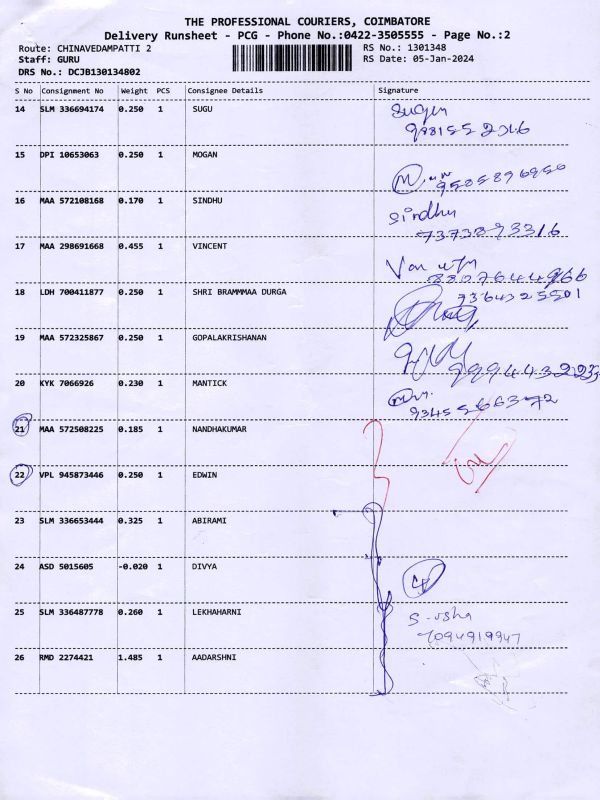 THE PROFESSIONAL COURIERS, COIMBATORE
Delivery Runsheet - PCG - Phone No.:0422-3505555 - Page No.:2
Route: CHINAVEDAMPATTI 2 RS No.: 1301348
Staff: GURU RS Date: 05-Jan-2024
DRS No.: DCJB130134802
S No Consignment No Weight PCS Consignee Details Signature
14 SLM 336694174 0.250 1 SUGU
15 DPI 10653063 0.250 1 MOGAN
16 MAA 572108168 0.170 1 SINDHU Sindhu
7373893316
17 MAA 298691668 0.455 1 VINCENT
8807644966
18 LDH 700411877 0.250 1 SHRI BRAMMMAA DURGA 7364325501
19 MAA 572325867 0.250 1 GOPALAKRISHANAN
20 KYK 7066926 0.230 1 MANTICK
21 MAA 572508225 0.185 1 NANDHAKUMAR
22 VPL 945873446 0.250 1 EDWIN
23 SLM 336653444 0.325 1 ABIRAMI
24 ASD 5015605 -0.020 1 DIVYA
25 SLM 336487778 0.260 1 LEKHAHARNI S-usha
7094919947
26 RMD 2274421 1.485 1 AADARSHNI